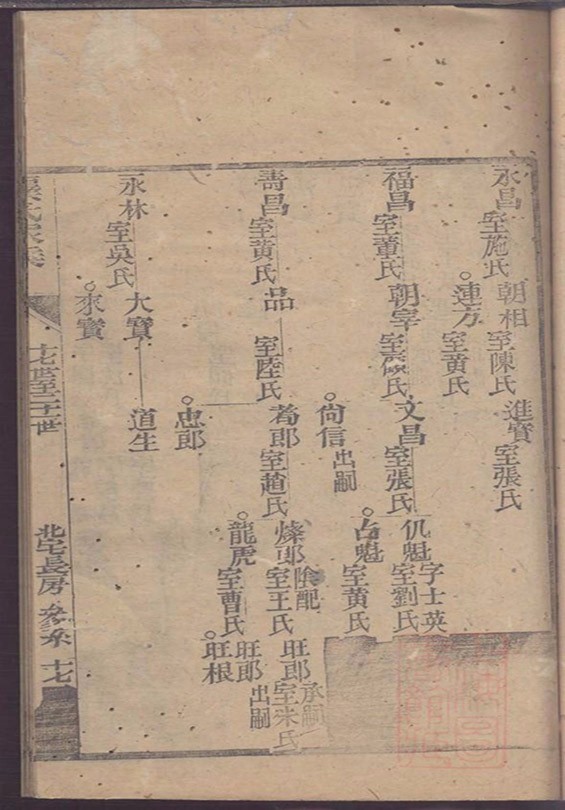 永昌室施氏
朝相室陳氏
進寶室張氏
連方室黄氏
福昌室董氏
朝宰室陳氏
文昌室張氏
仉魁字士英室劉氏
占魁室黄氏
尙信出嗣
壽昌室黄氏
品一室陸氏
荀郎室趙氏
燦郎陰配室王氏
旺郎承嗣室朱氏
龍虎室曹氏
旺郎出嗣
旺根
忠郎
永林室吳氏
大寶
道生
來寶
十七世至二十一世
北宅長房
十七